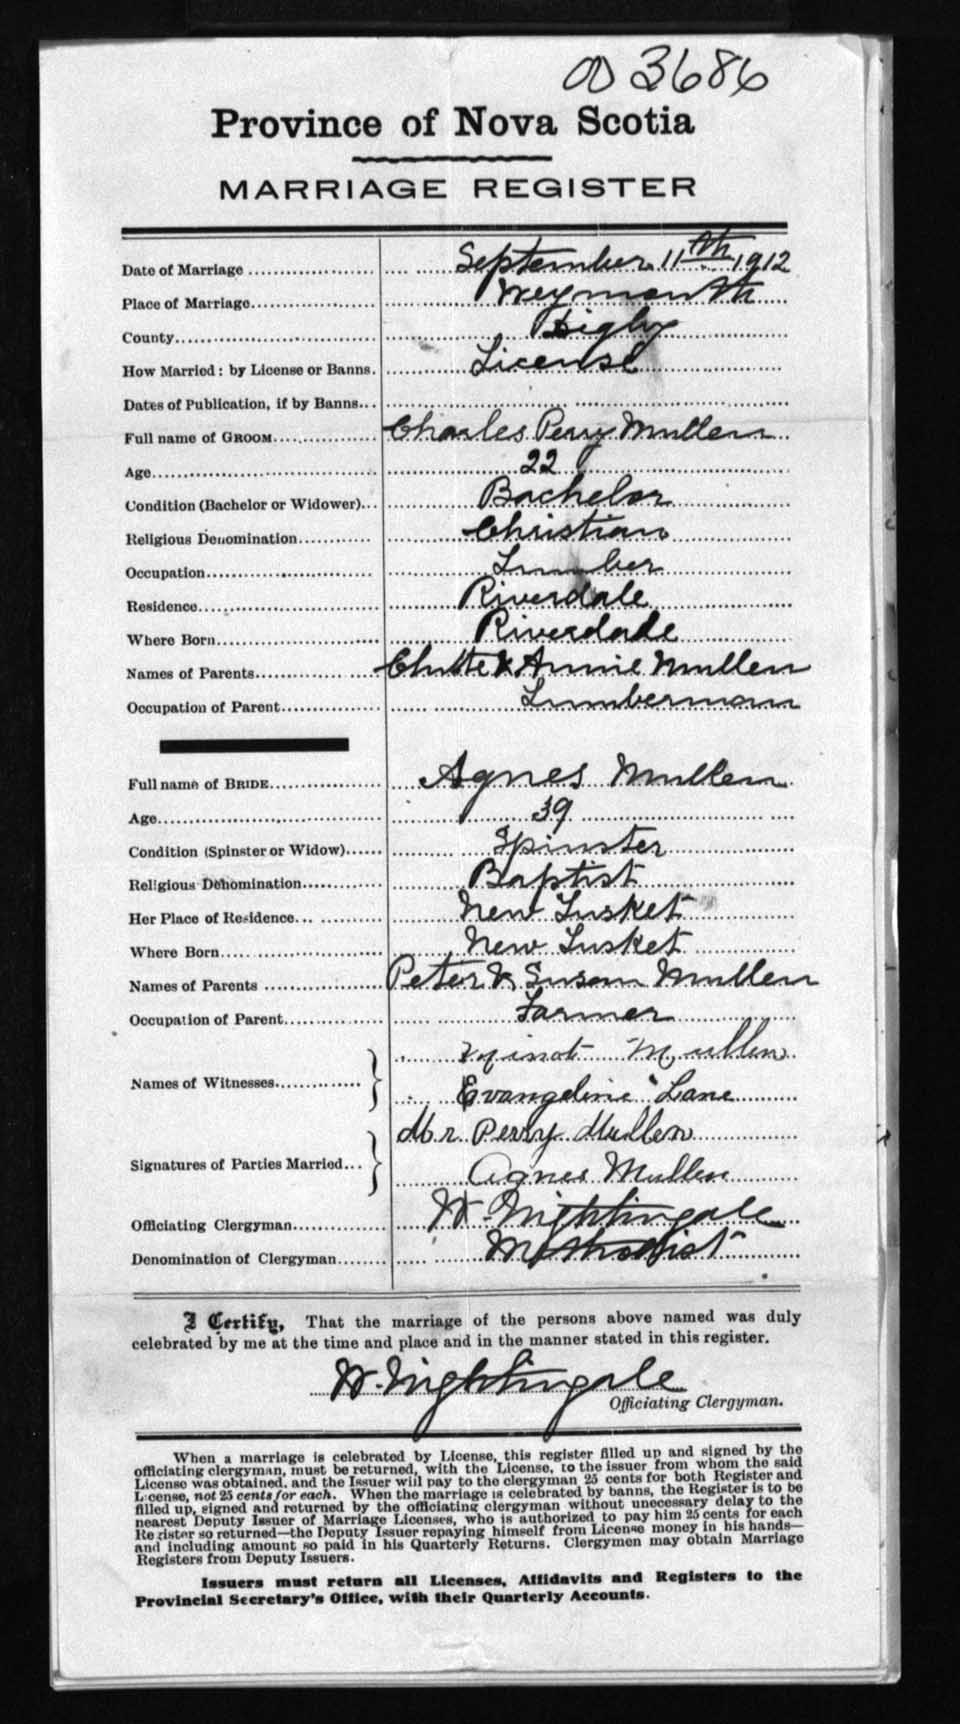 3686
Province of Nova Scotia
MARRIAGE REGISTER
Date of Marriage September 11th 1912
Place of Marriage Weymouth
County Digby
How Married: by License or Banns. License
Dates of Publication, if by Banns
Full name of GROOM Charles Perry Mullen
Age 22
Condition (Bachelor or Widower) Bachelor
Religious Denomination Christian
Occupation Lumber
Residence Riverdale
Where Born Riverdale
Names of Parents Chutte & Annie Mullen
Occupation of Parent Lumberman
Full name of BRIDE Agnes Mullen
Age 39
Condition (Spinster or Widow) Spinster
Religious Denomination Baptist
Her Place of Residence New Tusket
Where Born New Tusket
Names of Parents Peter & Susan Mullen
Occupation of Parent Farmer
Names of Witnesses Minot Mullen
Evangeline Lane
Signatures of Parties Married Mr Perry Mullen
Agnes Mullen
Officiating Clergyman W. Nightingale
Denomination of Clergyman Methodist
I Certify, That the marriage of the persons above named was duly
celebrated by me at the time and place and in the manner stated in this register.
W. Nightingale
Officiating Clergyman.
When a marriage is celebrated by License, this register filled up and signed by the
officiating clergyman, must be returned, with the License, to the issuer from whom the said
License was obtained, and the Issuer will pay to the clergyman 25 cents for both Register and
License, not 25 cents for each. When the marriage is celebrated by banns, the Register is to be
filled up, signed and returned by the officiating clergyman without unecessary delay to the
nearest Deputy Issuer of Marriage Licenses, who is authorized to pay him 25 cents for each
Register so returned—the Deputy Issuer repaying himself from License money in his hands—
and including amount so paid in his Quarterly Returns. Clergymen may obtain Marriage
Registers from Deputy Issuers.
Issuers must return all Licenses, Affidavits and Registers to the
Provincial Secretary's Office, with their Quarterly Accounts.